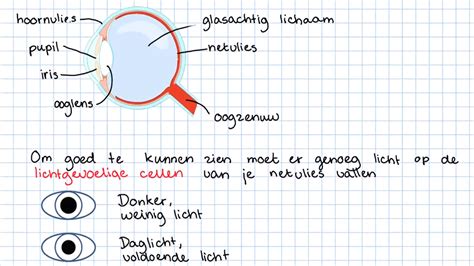 hoornvlies
pupil
iris
ooglens
glasachtig lichaam
netvlies
oogzenuw
Om goed te kunnen zien moet er genoeg licht op de
lichtgevoelige cellen van je netvlies vallen
Donker,
weinig licht
Daglicht,
voldoende licht